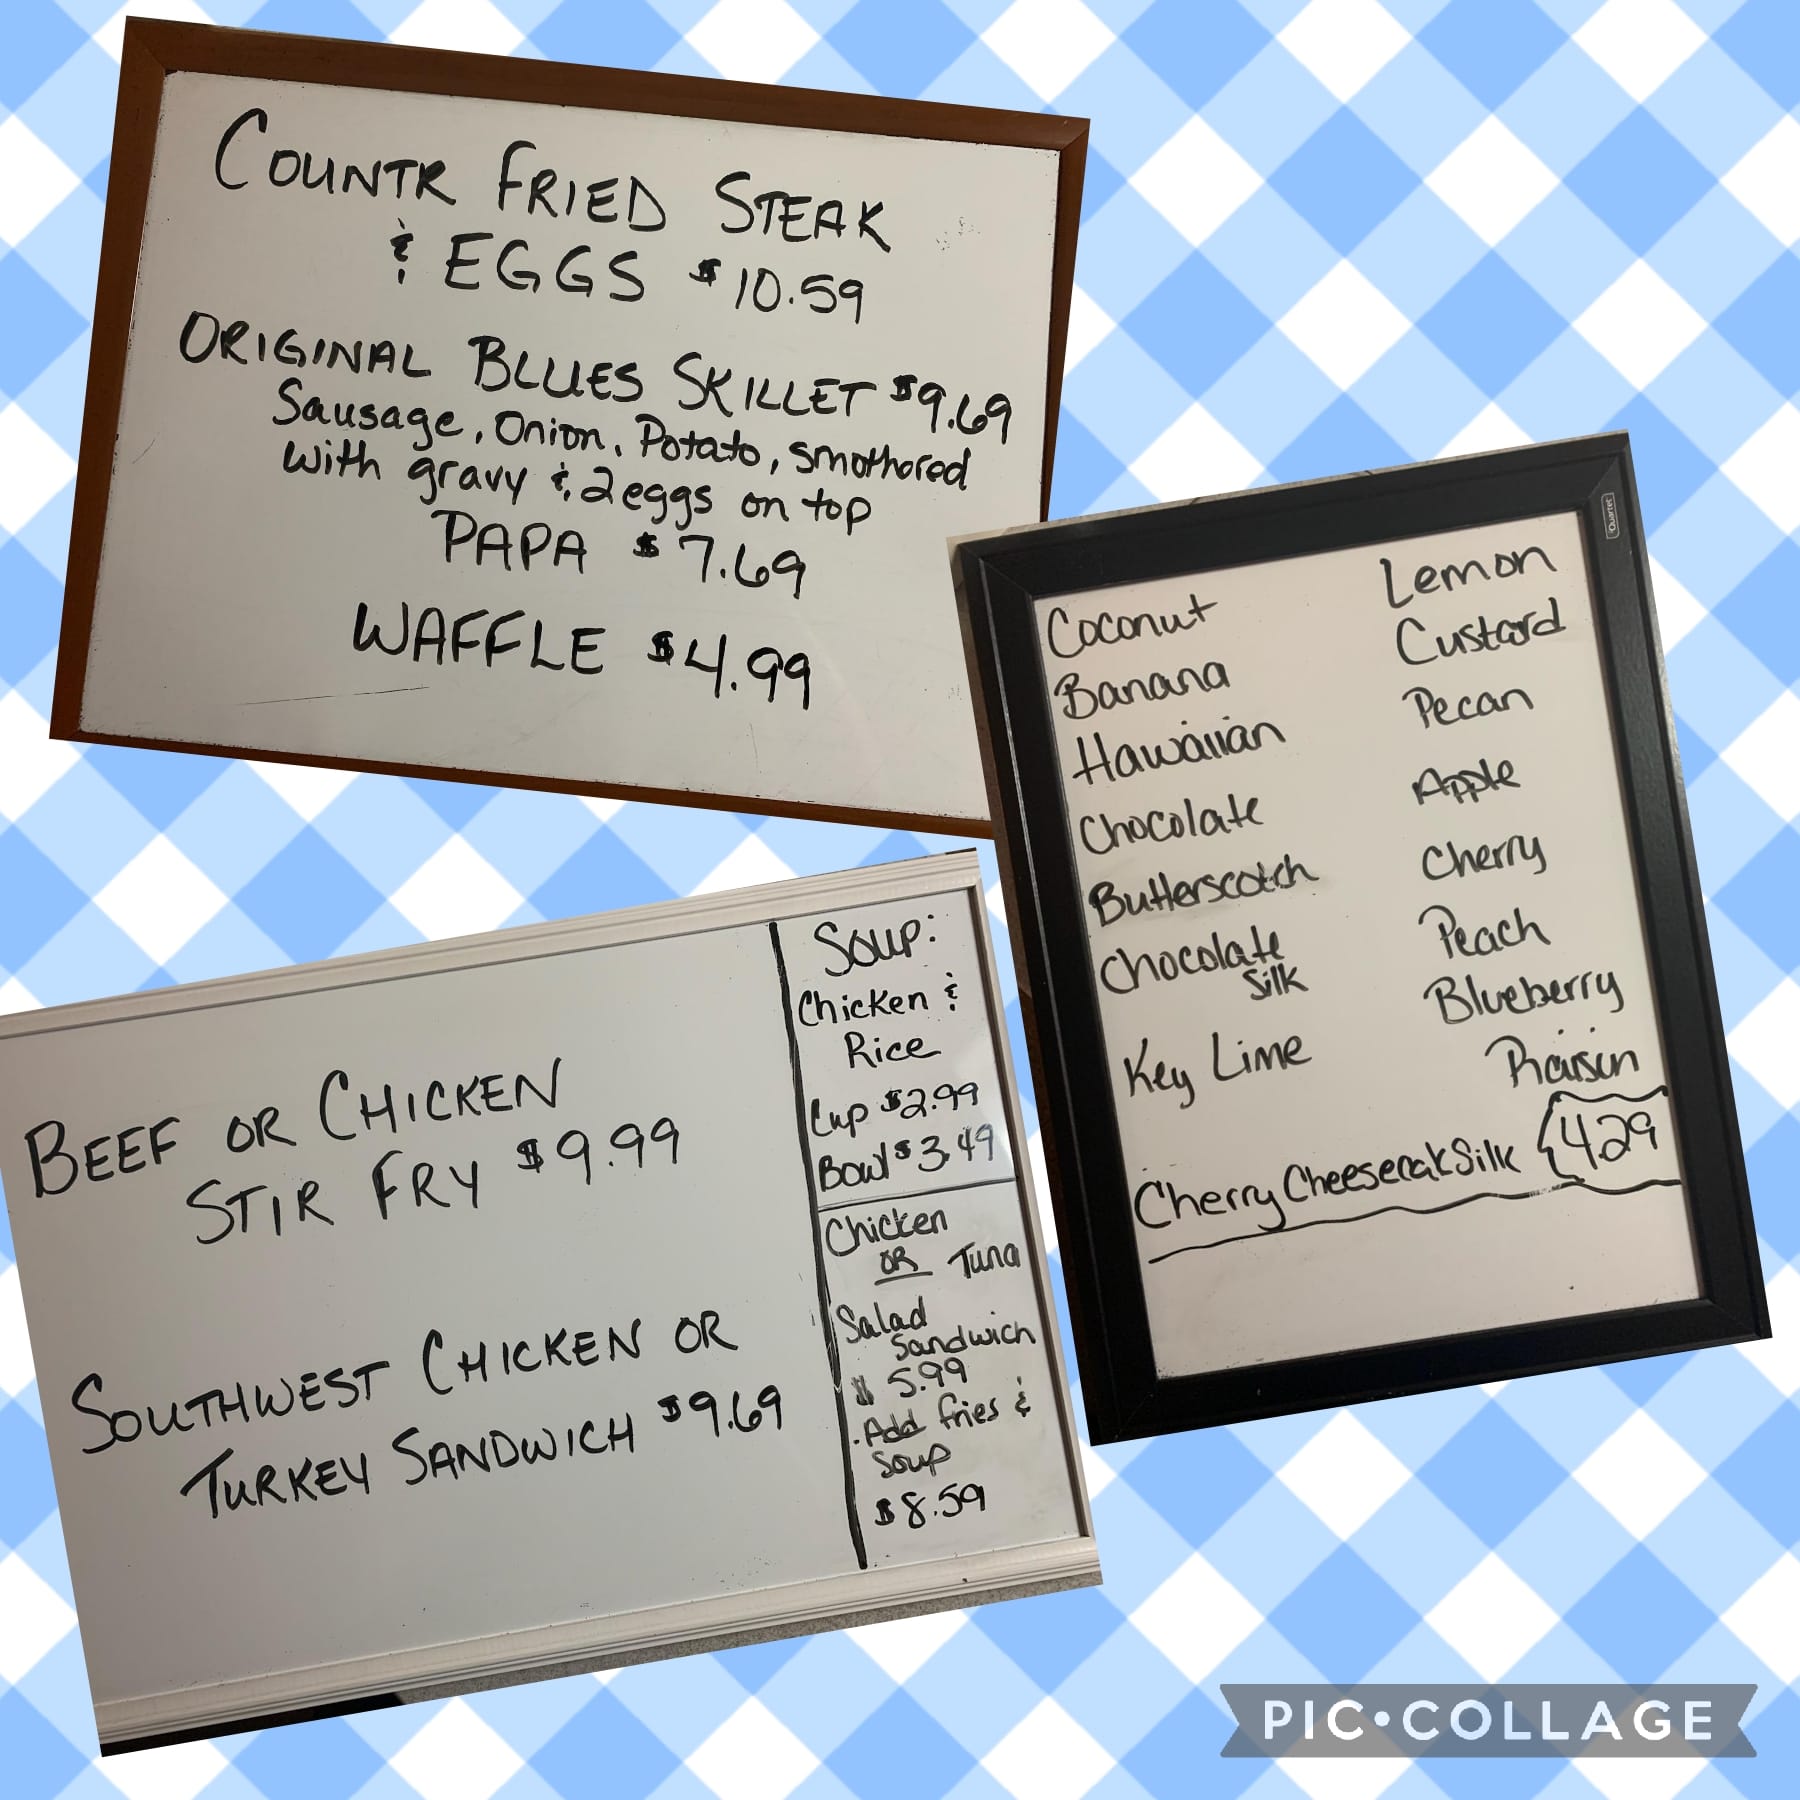 COUNTR FRIED STEAK
& EGGS $10.59
ORIGINAL BLUES SKILLET $9.69
Sausage, Onion, Potato, smothored
with gravy & 2 eggs on top
PAPA $7.69
WAFFLE $4.99
Quartet
Coconut
Banana
Hawaiian
Chocolate
Butterscotch
Chocolate
Silk
Key Lime
Lemon
Custard
Pecan
Apple
Cherry
Peach
Blueberry
Raisin
Cherry Cheesecak Silk 4.29
BEEF OR CHICKEN
STIR FRY $9.99
SOUTHWEST CHICKEN OR
TURKEY SANDWICH $9.69
Soup:
Chicken &
Rice
Cup $2.99
Bowl $3.49
Chicken
OR Tuna
Salad
Sandwich
$5.99
. Add fries &
Soup
$8.59
PIC•COLLAGE